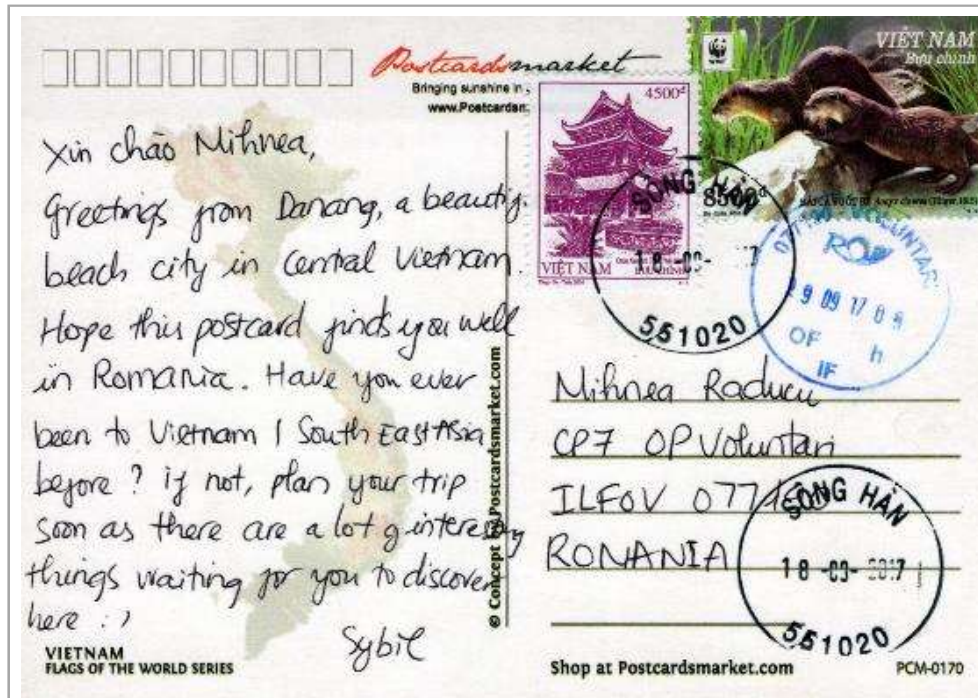 Postcardsmarket
Bringing sunshine in
www.Postcardsm
VIỆT NAM
Bưu chính
4500đ
8500đ
VIỆT NAM
BƯU CHÍNH
SÔNG HÀN
18 -09- 7
551020
9 09 17 0
OF h
IF
Xin chào Mihnea,
Greetings from Danang, a beautif.
beach city in Central Vietnam.
Hope this postcard finds you well
in Romania. Have you ever
been to Vietnam / South East Asia
before? if not, plan your trip
soon as there are a lot of interesting
things waiting for you to discover
here :)
Sybil
© Concept by Postcardsmarket.com
Mihnea Raducu
CP7 OP Voluntari
ILFOV 077190
RONANIA
SÔNG HÀN
18 -09- 2017
551020
VIETNAM
FLAGS OF THE WORLD SERIES
Shop at Postcardsmarket.com
PCM-0170